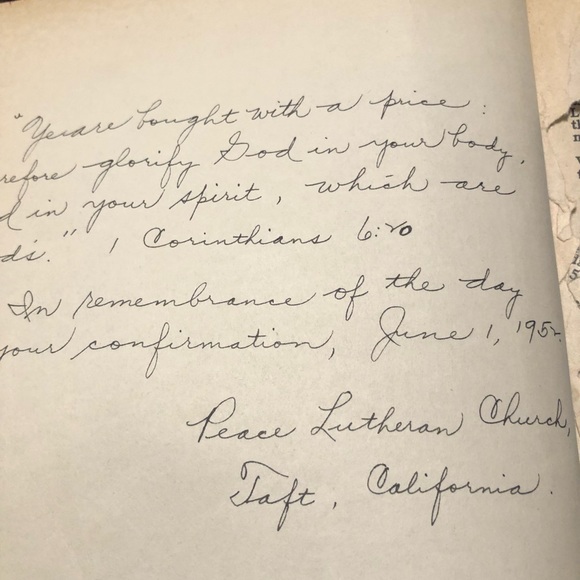 "Ye are bought with a price :
refore glorify God in your body,
d in your spirit, which are
d's." 1 Corinthians 6:20
In remembrance of the day
your confirmation, June 1, 1952.
Peace Lutheran Church,
Taft, California.